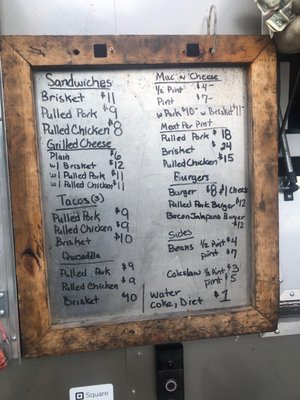 Sandwiches
Brisket $11
Pulled Pork $9
Pulled Chicken $8
Grilled Cheese
Plain $6
w/ Brisket $12
w/ Pulled Pork $11
w/ Pulled Chicken $11
Tacos (3)
Pulled Pork $9
Pulled Chicken $9
Brisket $10
Quesadilla
Pulled Pork $9
Pulled Chicken $9
Brisket $10
Mac 'N' Cheese
1/2 Pint $4
Pint $7
w/ Pork $10 w/ Brisket $11
Meat Per Pint
Pulled Pork $18
Brisket $24
Pulled Chicken $15
Burgers
Burger $8 $1 Cheese
Pulled Pork Burger $12
Bacon Jalapeno Burger
$12
Sides
Beans 1/2 Pint $4
pint $7
Coleslaw 1/2 Pint $3
pint $5
Water
Coke, Diet $1
Square